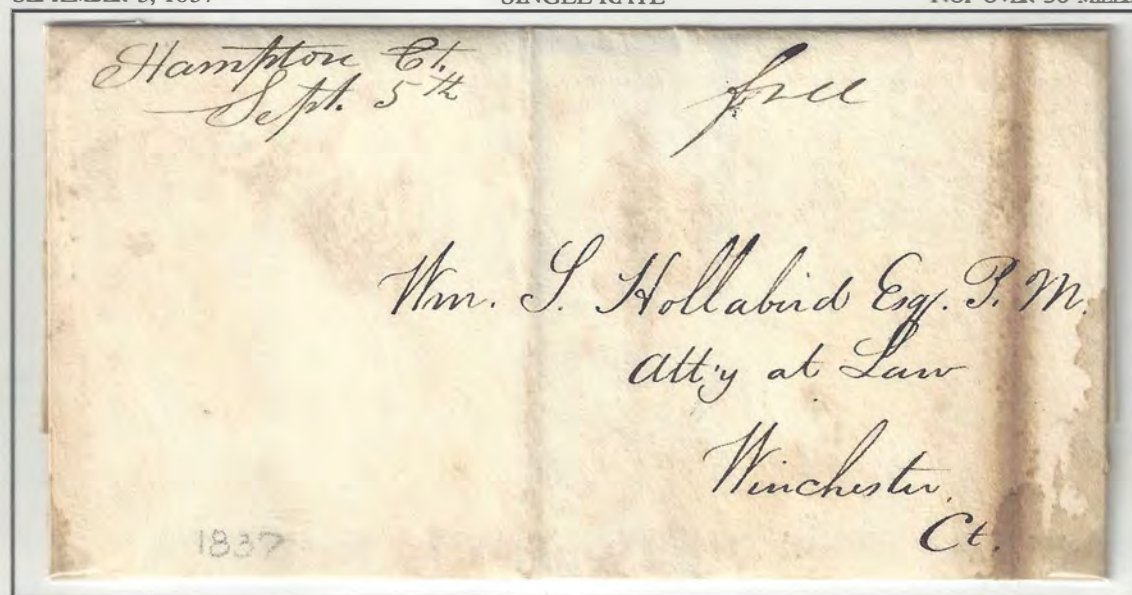 SINGLE RATE
Hampton Ct.
Sept. 5th
free
Wm. S. Hollabird Esq. P. M.
Att'y at Law
Winchester,
Ct.
1837